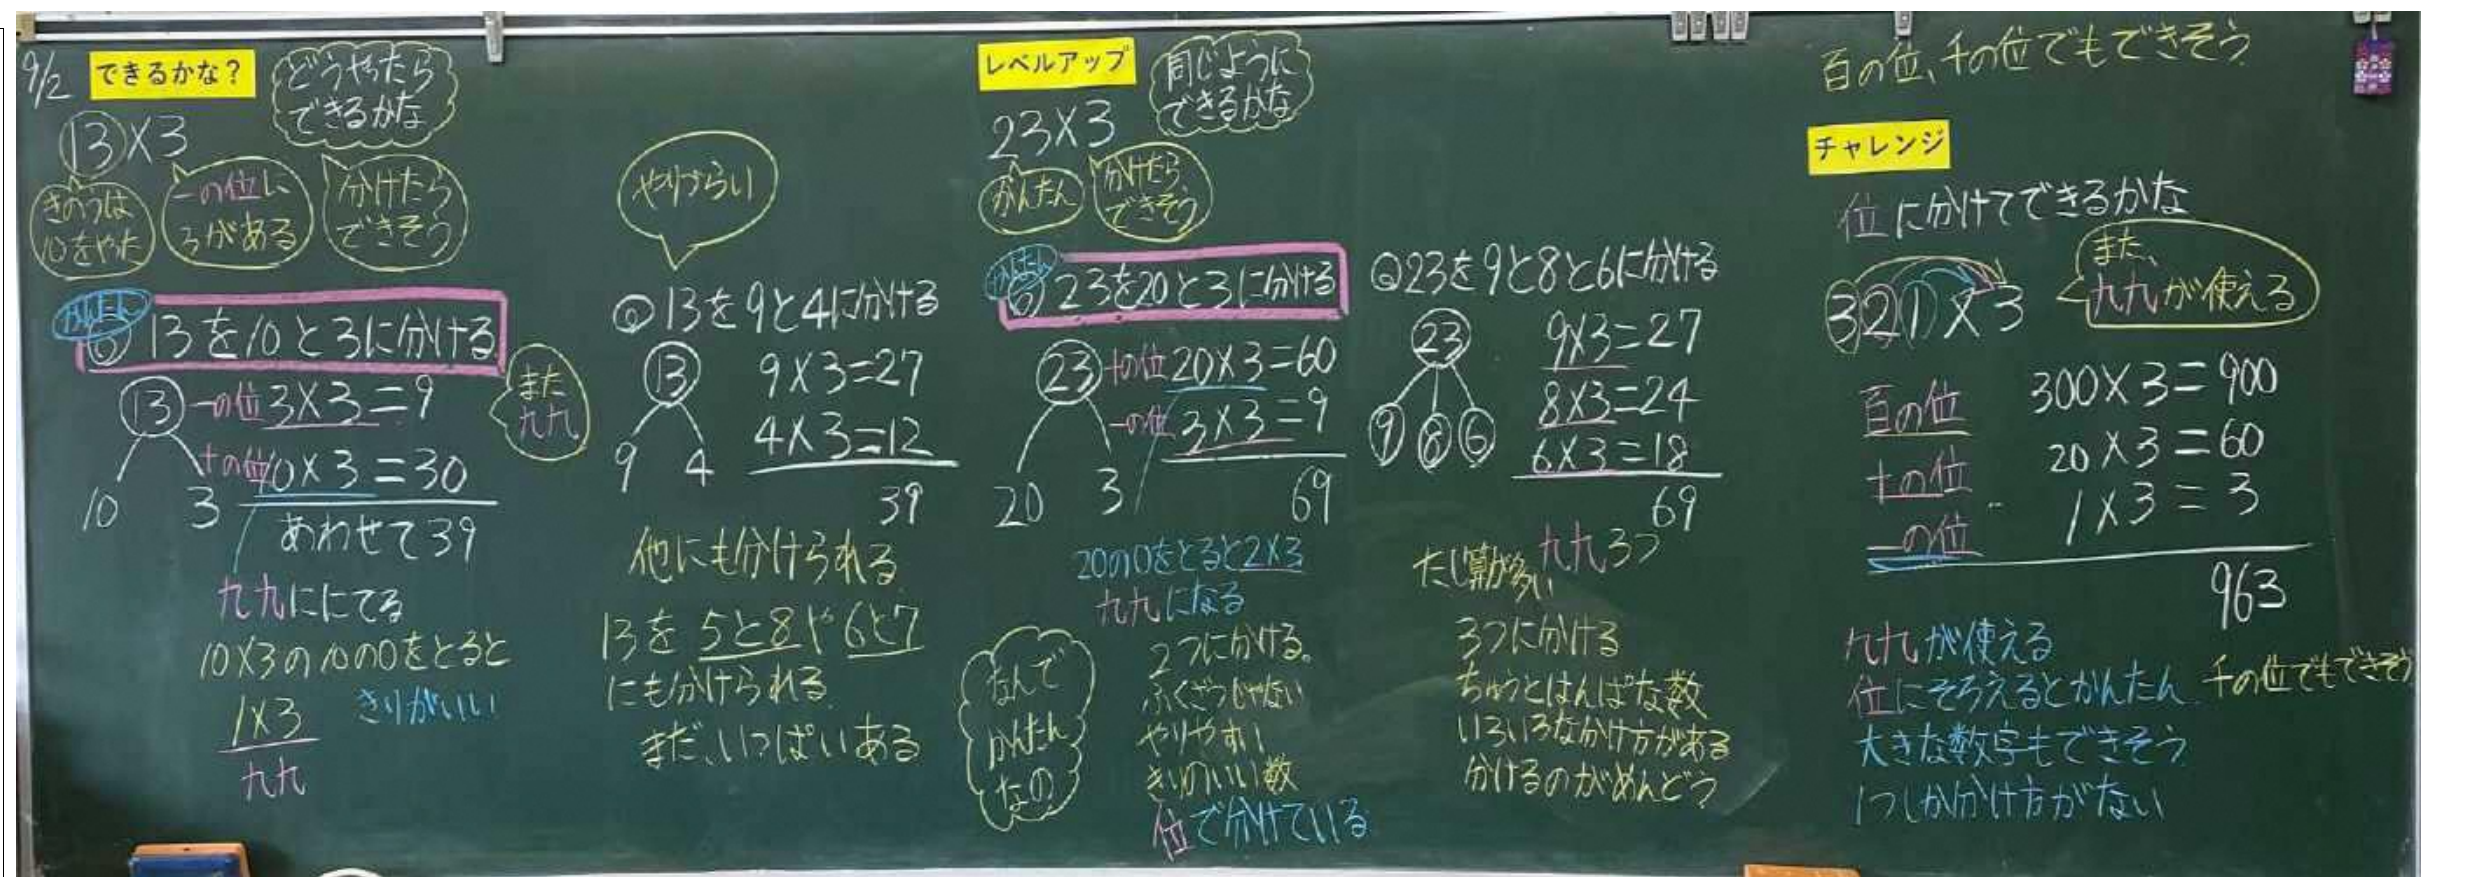 9/2
できるかな?
どうやったら
できるかな
13×3
きのうは
10をやった
一の位に
3がある
分けたら
できそう
かんたん
13を10と3に分ける
13
10 3
一の位 3×3=9
十の位 10×3=30
あわせて39
また
九九
九九ににてる
10×3の10の0をとると
1×3
九九
きりがいい
やりづらい
13を9と4に分ける
13
9 4
9×3=27
4×3=12
39
他にも分けられる
13を5と8や6と7
にも分けられる
まだ、いっぱいある
レベルアップ
同じように
できるかな
23×3
かんたん
分けたら
できそう
かんたん
23を20と3に分ける
23
20 3
十の位 20×3=60
一の位 3×3=9
69
20の0をとると2×3
九九になる
なんで
かんたん
なの
2つに分ける。
ふくざつじゃない
やりやすい
きりのいい数
位で分けている
23を9と8と6に分ける
23
9 8 6
9×3=27
8×3=24
6×3=18
69
たし算が多い
九九3つ
3つに分ける
ちゅうとはんぱな数
いろいろな分け方がある
分けるのがめんどう
百の位、千の位でもできそう
チャレンジ
位に分けてできるかな
321×3
また、
九九が使える
百の位 300×3=900
十の位 20×3=60
一の位 1×3=3
963
九九が使える
位にそろえるとかんたん
大きな数字もできそう
1つしか分け方がない
千の位でもできそう